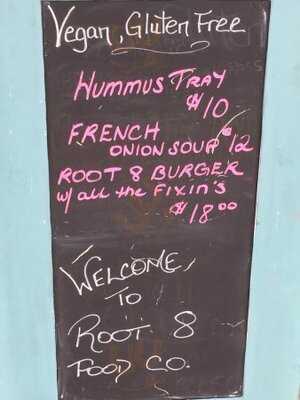 Vegan, Gluten Free
HUMMUS TRAY
$10
FRENCH
ONION SOUP $12
ROOT 8 BURGER
w/ all the FIXIN'S
$18.00
WELCOME,
TO
ROOT 8
FOOD CO.